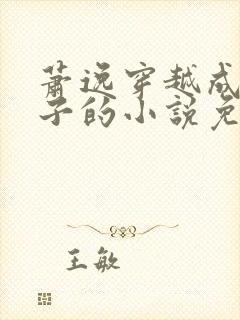 萧逸穿越成
子的小说免
王敏